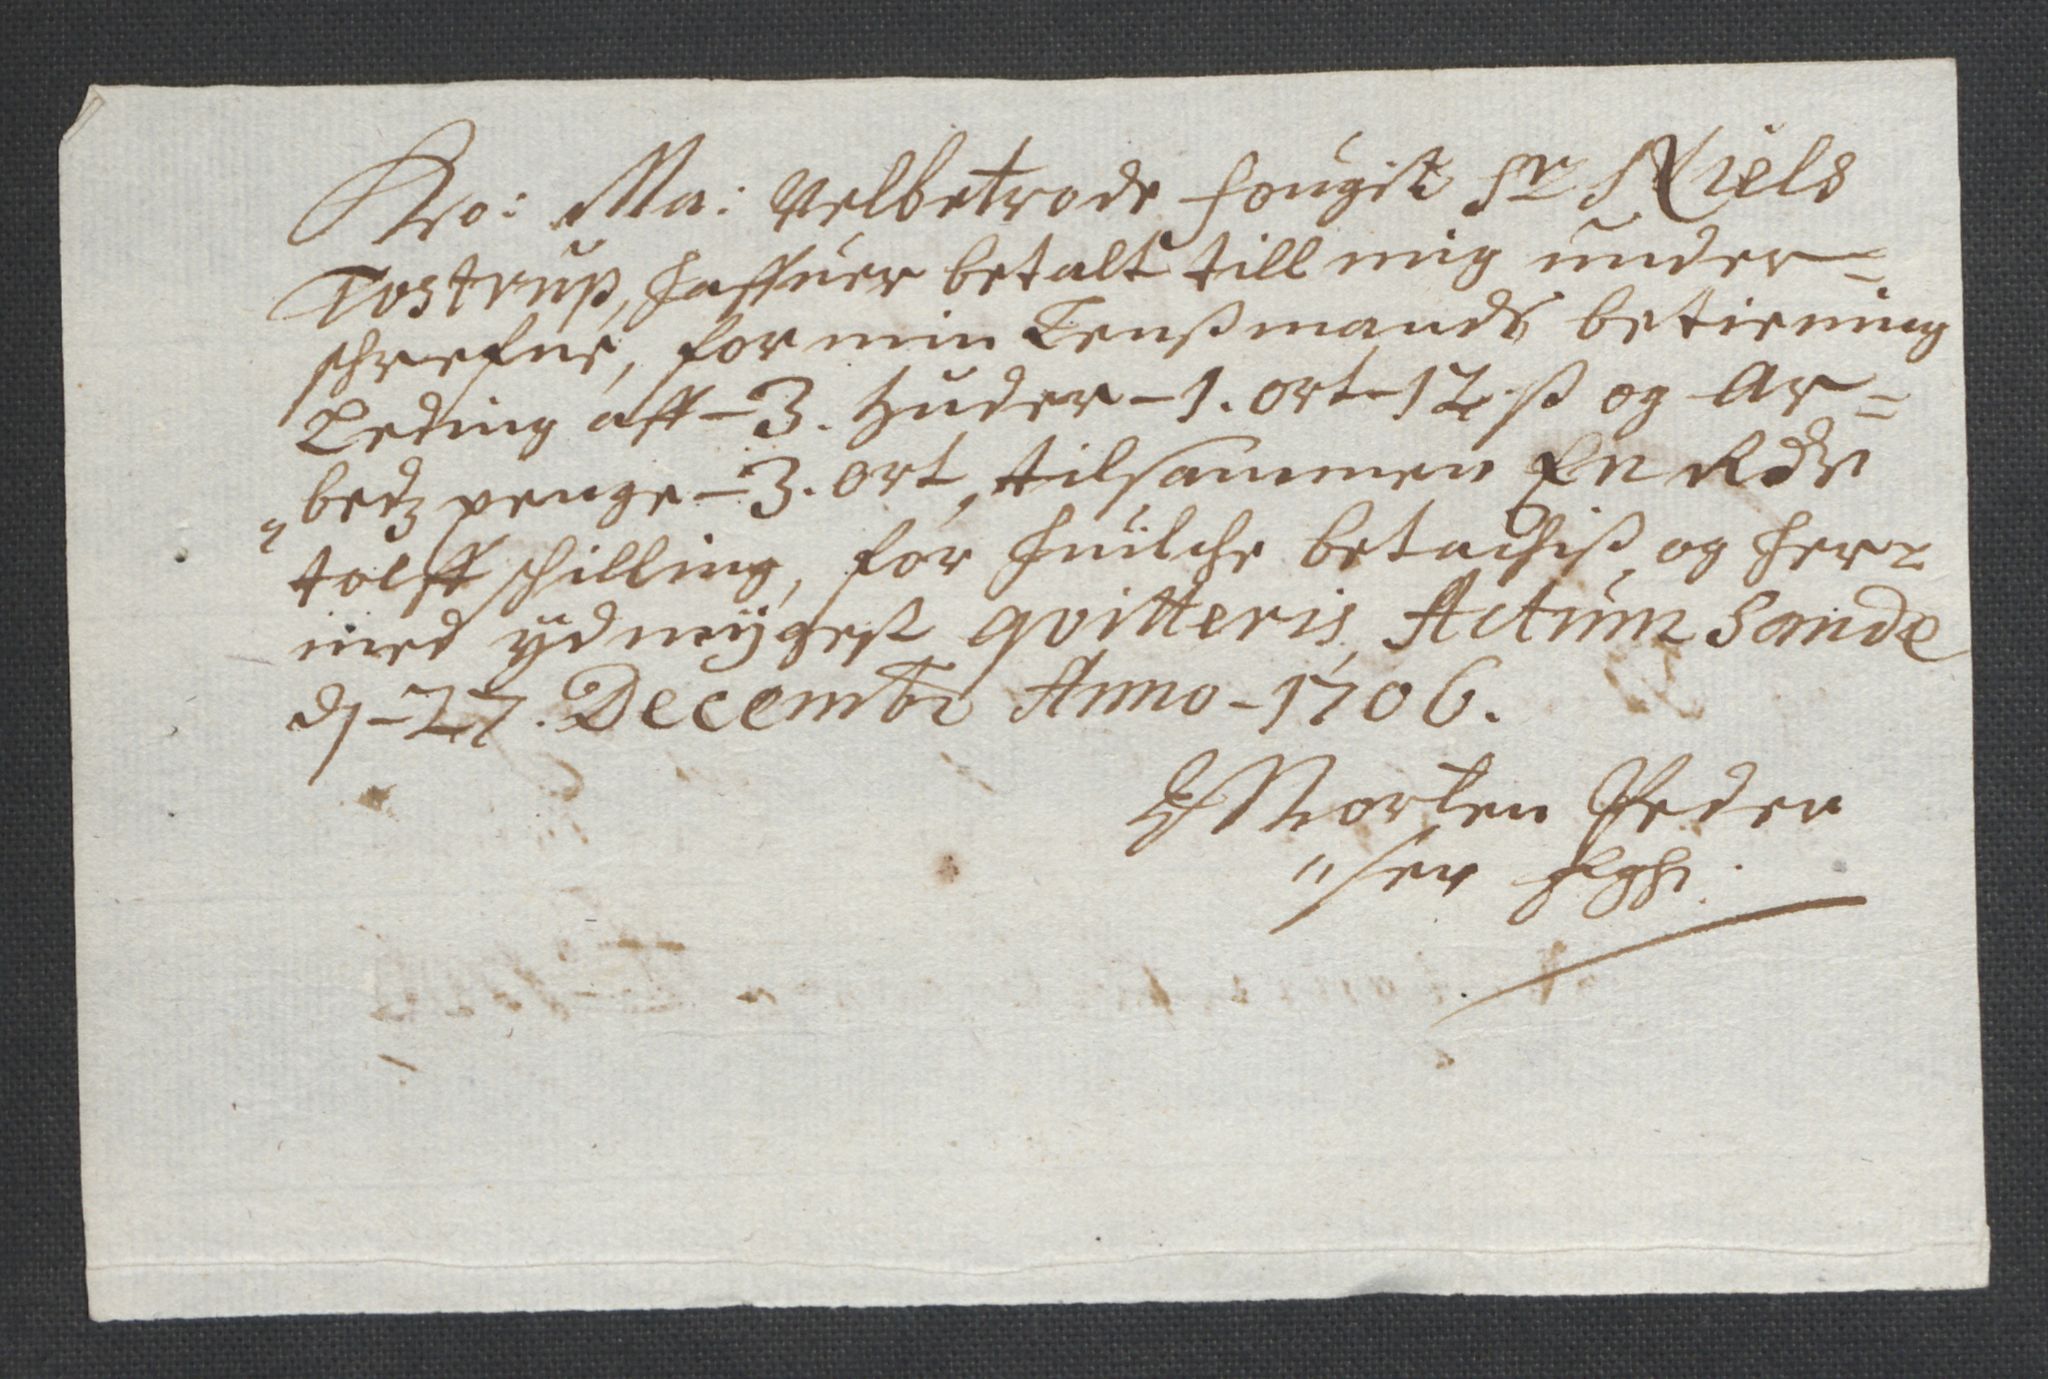 Kro: Ma: Velbetrode fougit Sr Niels
Tostrup, haffuer betalt till mig under=
schrefne, for min Lensmands betiening
Leding aff - 3. huder - 1. ort - 12 ß og Ar=
bedz penge - 3. ort, tilsammen En Rdr
tolff schilling, for huilche betachis, og her
med ydmygest qvitteris, Actum Sande
d - 27. Decembr Anno - 1706.
Morten Peder
"sen